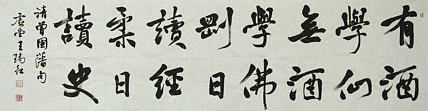 有酒
學仙
無酒
學佛
剛日
讀經
柔日
讀史
清曾國藩句
王